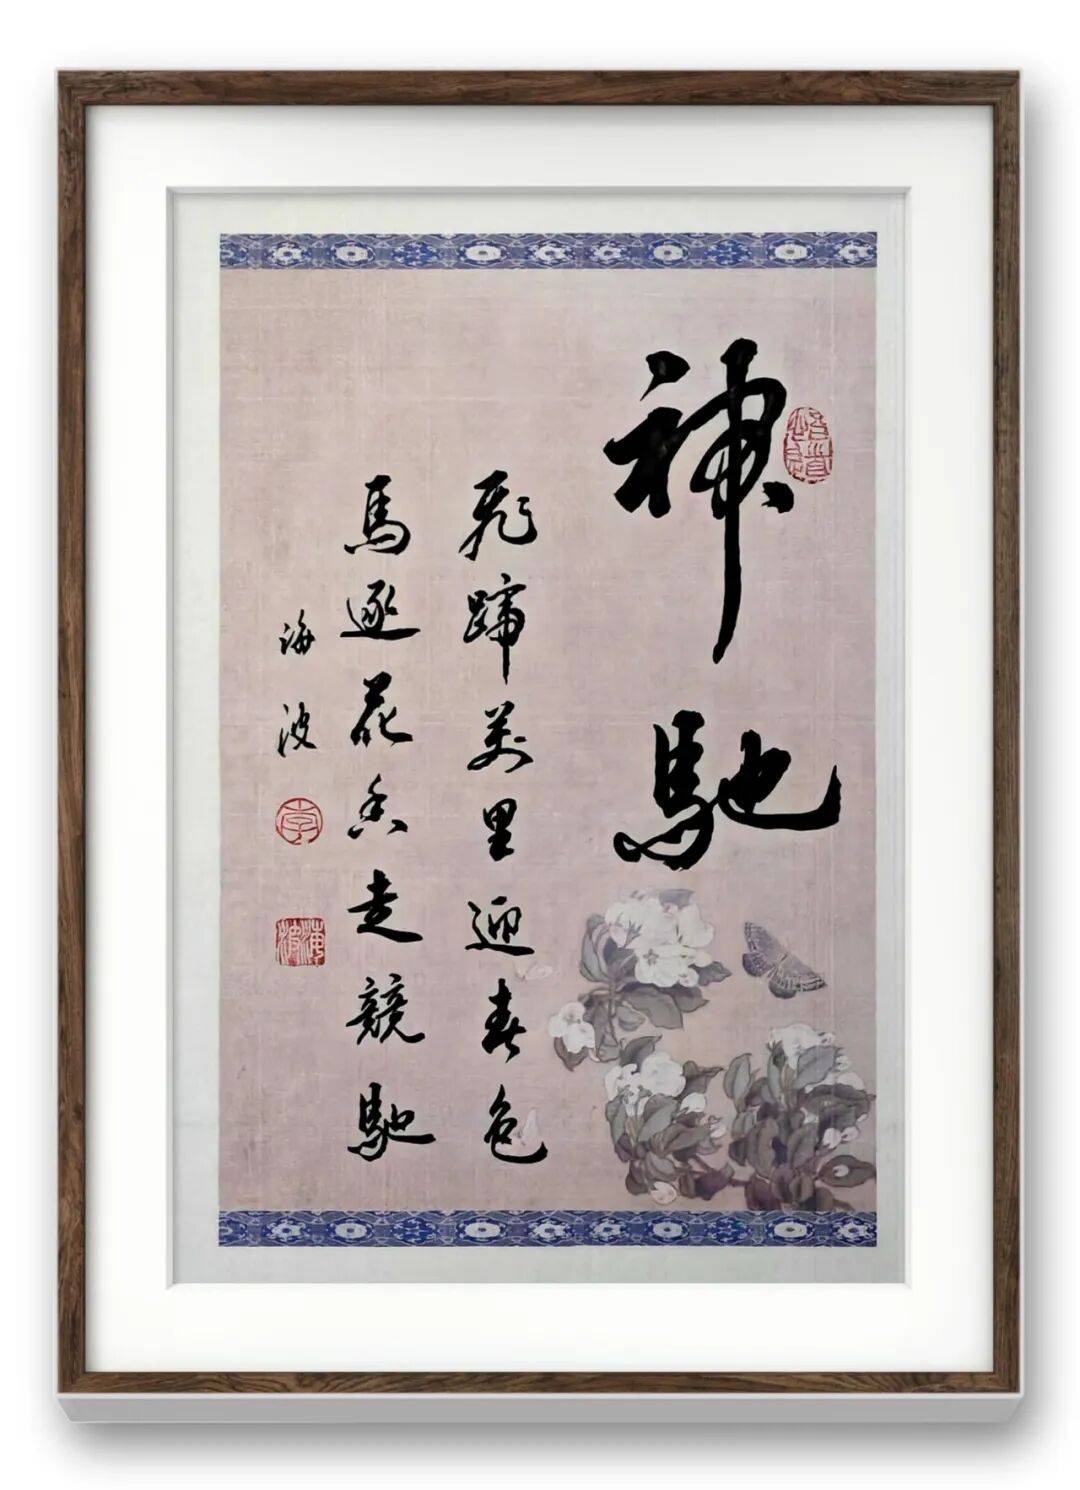 神馳
飛蹄萬里迎春色
馬逐花香走競馳
海波
李
海波